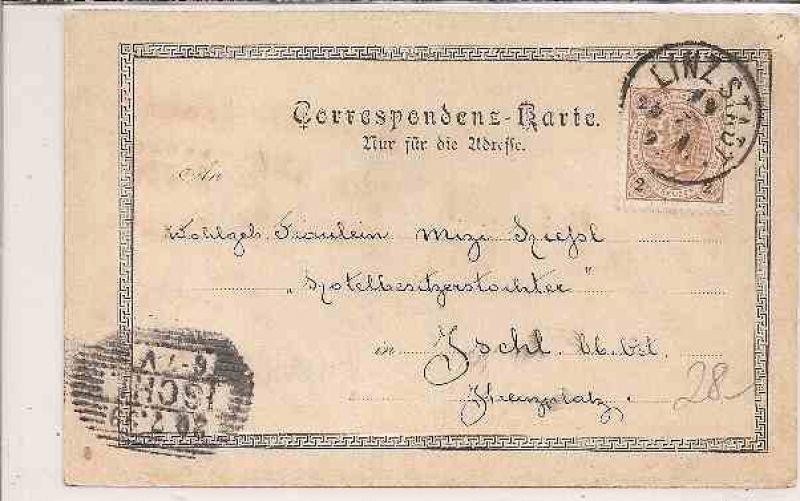 Correspondenz-Karte.
Nur für die Adresse.
LINZ STADT
2 2
An
Wohlgeb. Fräulein Mizi
„Hotelbesitzerstochter“
in Ischl. Ob. Öst.
Kreuzplatz.
28